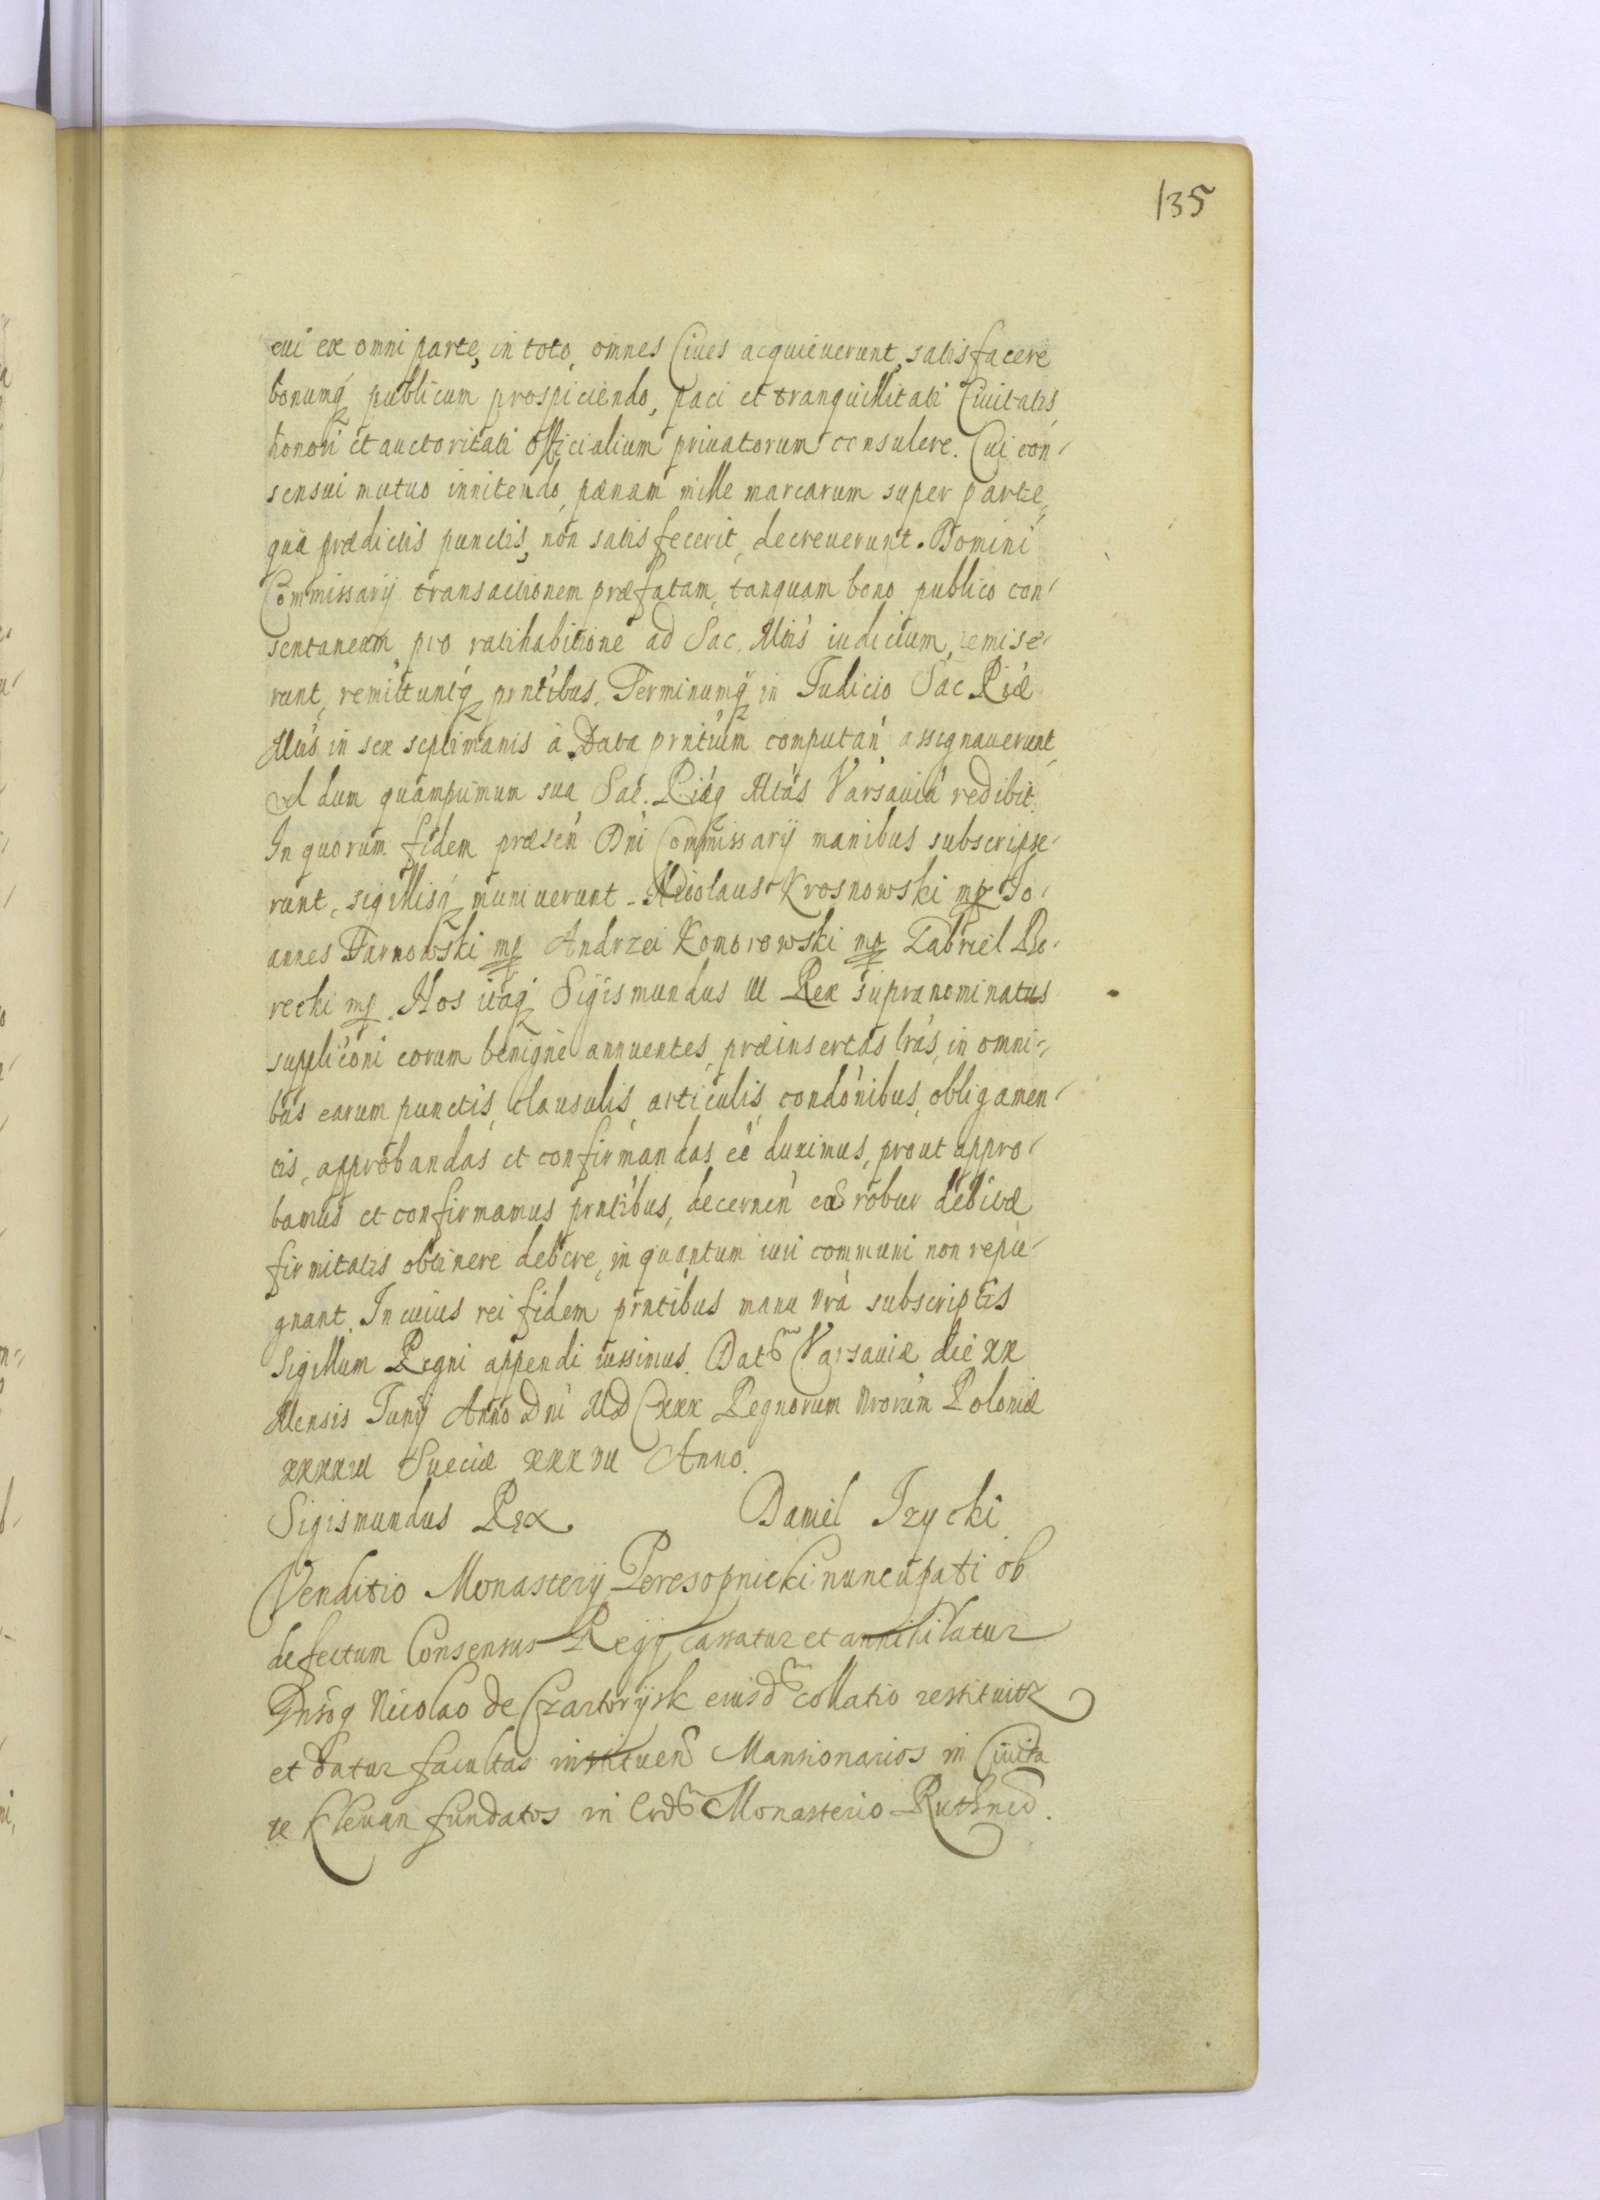 135
cui ex omni parte, in toto, omnes Ciues acquieuerunt, satisfacere
bonumq publicum prospiciendo, paci et tranquillitati Ciuitatis,
honori et auctoritati officialium priuatorum consulere. Cui con-
sensui mutuo innitendo, pænam mille marcarum super parte,
quæ prædictis punctis, non satisfecerit, decreuerunt. Domini
Commissarij transactionem præfatam, tanquam bono publico con-
sentaneam, pro ratihabitione ad Sac. Mtis iudicium, remise-
runt, remittuntq prntibus. Terminumq in Iudicio Sac Riæ
Mtis in sex septimanis à Data prntium computan assignauerunt,
vel dum quamprimum sua Sac. Riaq Mtas Varsauia redibit.
In quorum fidem præsen Dni Commissarij manibus subscripse-
runt, sigillisq muniuerunt. Nicolaus Krosnowski mp Io-
annes Tarnowski mp Andrzei Komorowski mp Gabriel Bo-
recki mp. Nos itaq Sigismundus III Rex supranominatus
suppliconi eorum benigne annuentes, præinsertas lras, in omni-
bus earum punctis, clausulis, articulis, condonibus, obligamen-
tis, approbandas et confirmandas eē duximus, prout appro-
bamus et confirmamus prntibus, decernen eas robur debitæ
firmitatis obtinere debere, in quantum iuri communi non repu-
gnant. In cuius rei fidem prntibus manu nra subscriptis
Sigillum Regni appendi iussimus. Datm Varsauiæ die xx
Mensis Iunij Anno Dni MDCxxx Regnorum nrorum Poloniæ
xxxxiii Sueciæ xxxvii Anno.
Sigismundus Rex Daniel Izycki
Venditio Monasterij Peresopnicki nuncupati ob
defectum Consensus Regij cassatur et annihilatur
Gnsoq Nicolao de Czartorijsk eiusdm collatio restituitr
et datur facultas instituen Mansionarios in Ciuita
te Klewan fundatos in eodm Monasterio